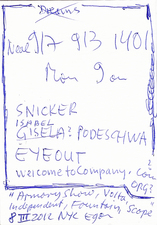 917 913 1401
Mon 9 am
SNICKER
ISABEL
GISELA? PODESCHWA
EYEOUT
welcometocompany.com
ORG?
"Armory Show, Volta
Independent, Fountain, Scope
8 III 2012 NYC Egon